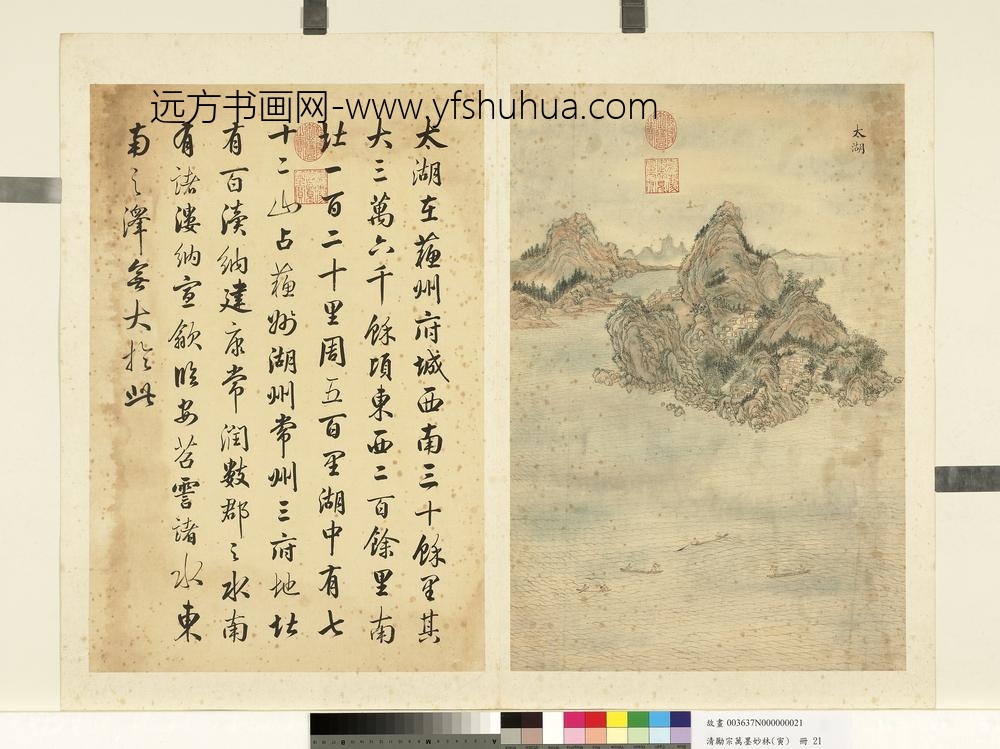 远方书画网-www.yfshuhua.com
太湖
太湖在蘇州府城西南三十餘里其
大三萬六千餘頃東西二百餘里南
北一百二十里周五百里湖中有七
十二山占蘇州湖州常州三府地北
有百瀆納建康常潤數郡之水南
有諸漊納宣歙臨安苕霅諸水東
南之澤無大於此
故畫 003637N000000021
清勵宗萬墨妙林(寅) 冊 21